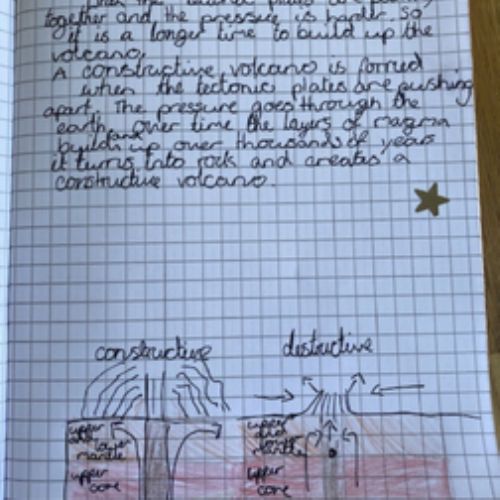 when the tectonic plates are pushing
together and the pressure is harder. So
it is a longer time to build up the
volcano.
A constructive volcano is formed
when the tectonic plates are pushing
apart. The pressure goes through the
earth, over time the layers of magma
build up over thousands of years and
it turns into rock and creates a
constructive volcano.
constructive
destructive
upper
lower
mantle
upper
core
upper
mantle
upper
core